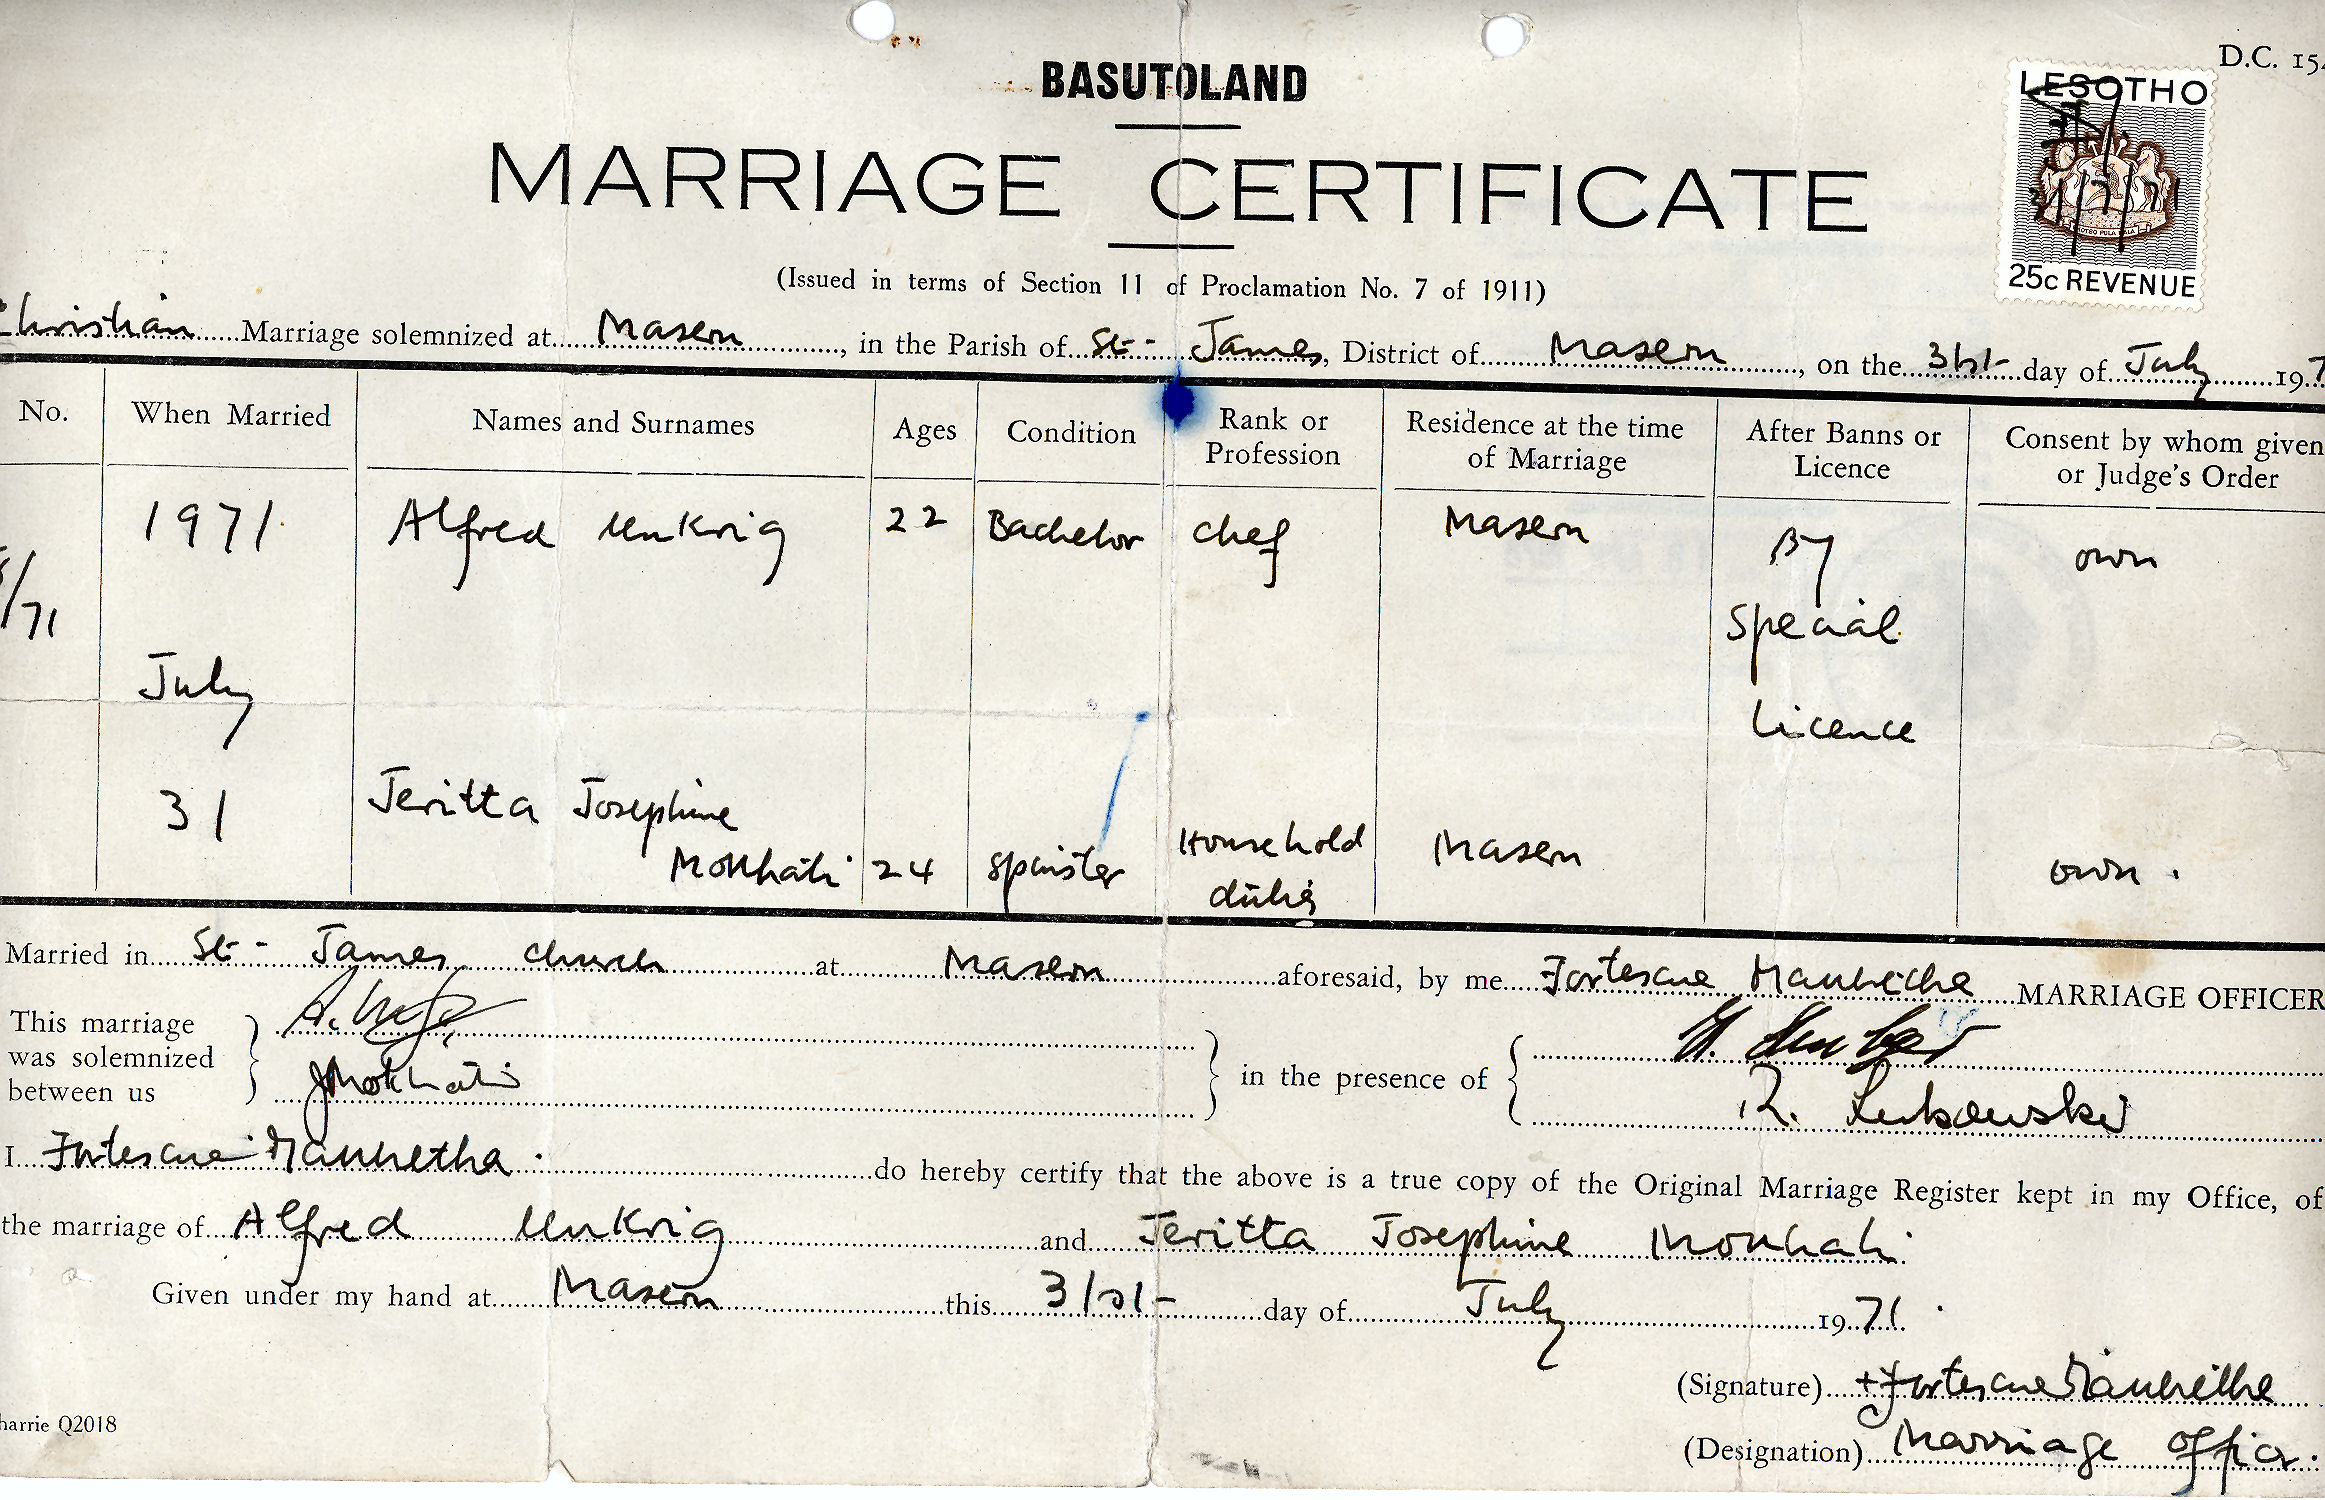 D.C. 15
BASUTOLAND
LESOTHO
31/7/71
25c REVENUE
MARRIAGE CERTIFICATE
(Issued in terms of Section 11 of Proclamation No. 7 of 1911)
Christian Marriage solemnized at Maseru, in the Parish of St- James, District of Maseru, on the 31st day of July 197
No. When Married Names and Surnames Ages Condition Rank or Profession Residence at the time of Marriage After Banns or Licence Consent by whom given or Judge's Order
1971 Alfred Unkrig 22 Bachelor Chef Maseru By own
/71 Special
July Licence
31 Jeritta Josephine Household Maseru
Mokhati 24 Spinster duties own.
Married in St- James Church at Maseru aforesaid, by me Fortescue Makhetha MARRIAGE OFFICER
This marriage
was solemnized in the presence of
between us JMokhati R. Lukowski
I Fortescue Makhetha do hereby certify that the above is a true copy of the Original Marriage Register kept in my Office, of
the marriage of Alfred Unkrig and Jeritta Josephine Mokhati.
Given under my hand at Maseru this 31st- day of July 1971.
(Signature) +Fortescue Makhetha
(Designation) Marriage Officer.
harrie Q2018